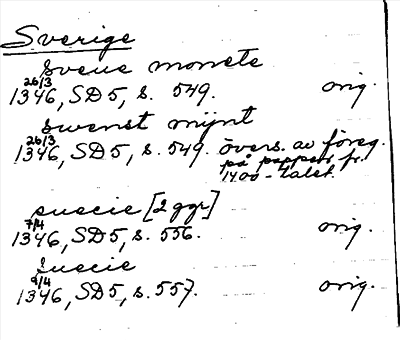 Sverige
sveue monete
26/3
1346, SD5, s. 549. orig.
swenst mijnt
26/3
1346, SD5, s. 549. övers. av föreg.
på papper fr.
1400-talet.
suecie [2 ggr]
7/4
1346, SD5, s. 556. orig.
suecie
9/4
1346, SD5, s. 557. orig.